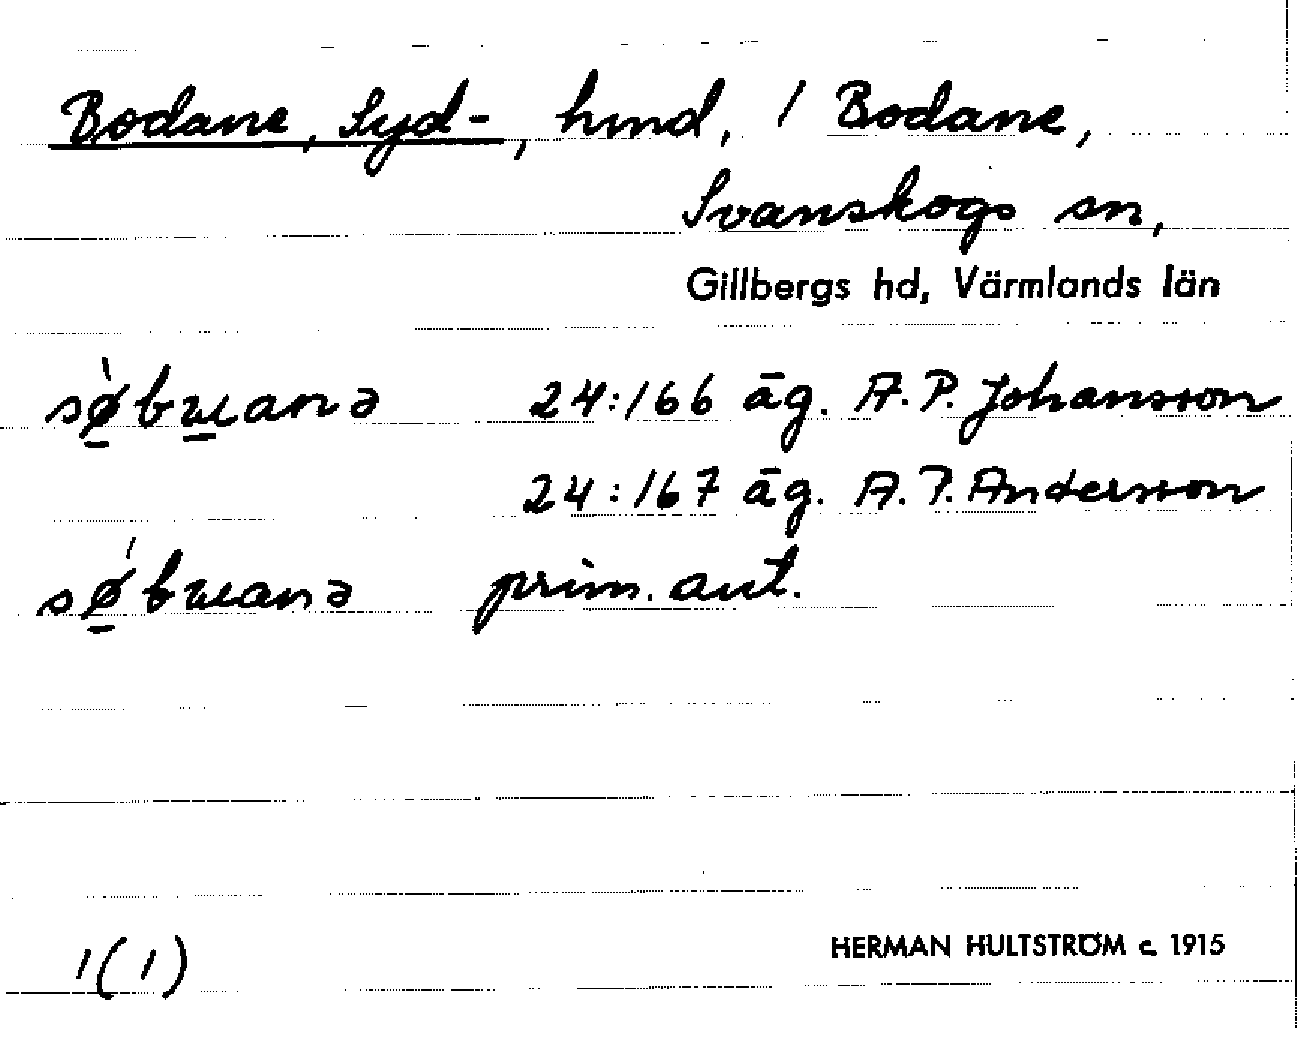 Bodane, Syd-, hmd, / Bodane,
Svanskogs sn,
Gillbergs hd, Värmlands län
sø̀bɯanə 24:166 äg. A.P. Johansson
24:167 äg. A.P. Andersson
sø̀bɯanə prim. aut.
1(1)
HERMAN HULTSTRÖM c. 1915